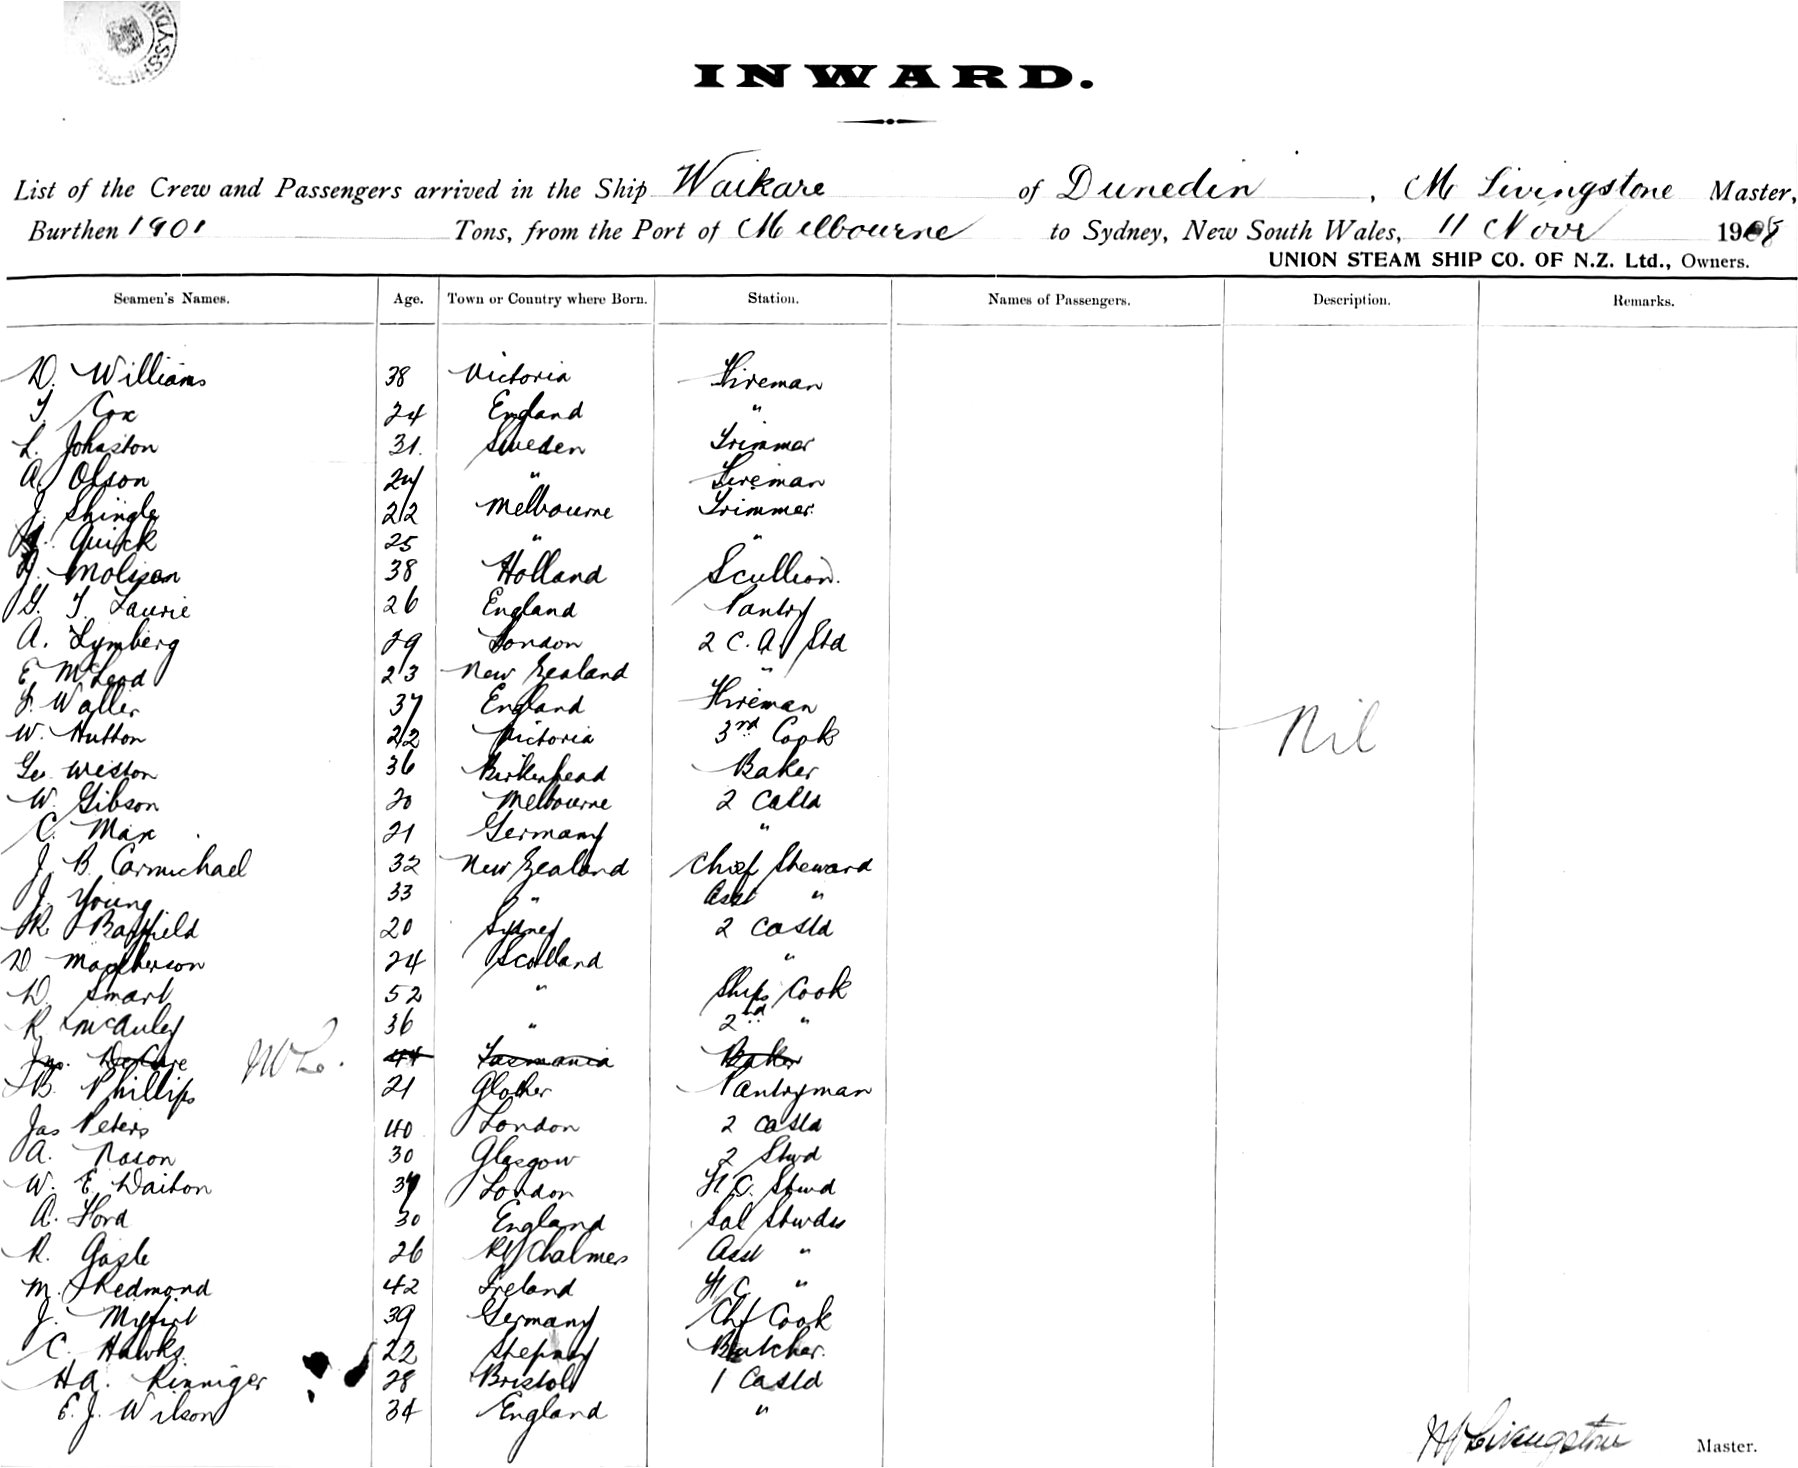 INWARD.
List of the Crew and Passengers arrived in the Ship Waikare of Dunedin, M Livingstone Master,
Burthen 1901 Tons, from the Port of Melbourne to Sydney, New South Wales, 11 Novr 1908
UNION STEAM SHIP CO. OF N.Z. Ltd., Owners.
Seamen's Names. Age. Town or Country where Born. Station. Names of Passengers. Description. Remarks.
D. Williams 38 Victoria Fireman
T. Cox 24 England "
L. Johnston 31. Sweden Trimmer
A. Olson 24 " Fireman
J. Shingle 22 Melbourne Trimmer
Quick 25 " "
J. Molison 38 Holland Scullion.
G. T. Laurie 26 England Pantry
A. Lymberg 29 London 2 C. A. Std
E. McLeod 23 New Zealand "
F. Waller 37 England Fireman
W. Hutton 22 Victoria 3rd Cook
Geo Weston 36 Birkenhead Baker
Nil
W. Gibson 20 Melbourne 2 CaStd
C. Max 21 Germany "
J. B. Carmichael 32 New Zealand Chief Steward
J. Young 33 " Asst "
R Bayfield 20 Sydney 2 CaStd
D Macpherson 24 Scotland "
D. Smart 52 " Ships Cook
R. McAuley 36 " 2nd "
Jas. 44 Tasmania Baker
B. Phillips 21 Pantryman
Jas Peters 40 London 2 CaStd
A. Nason 30 Glasgow 2 Stwd
W. E. Daiton 37 London F C. Stwd
A. Ford 30 England Sal Stwdss
R. Gasle 26 Pt Chalmers Asst "
M. Redmond 42 Ireland F C "
J. 39 Germany Chf Cook
C. Hawks. 22 Stepney Butcher.
HA. Rinniger 28 Bristol 1 CaStd
E. J. Wilson 34 England "
Livingstone Master.